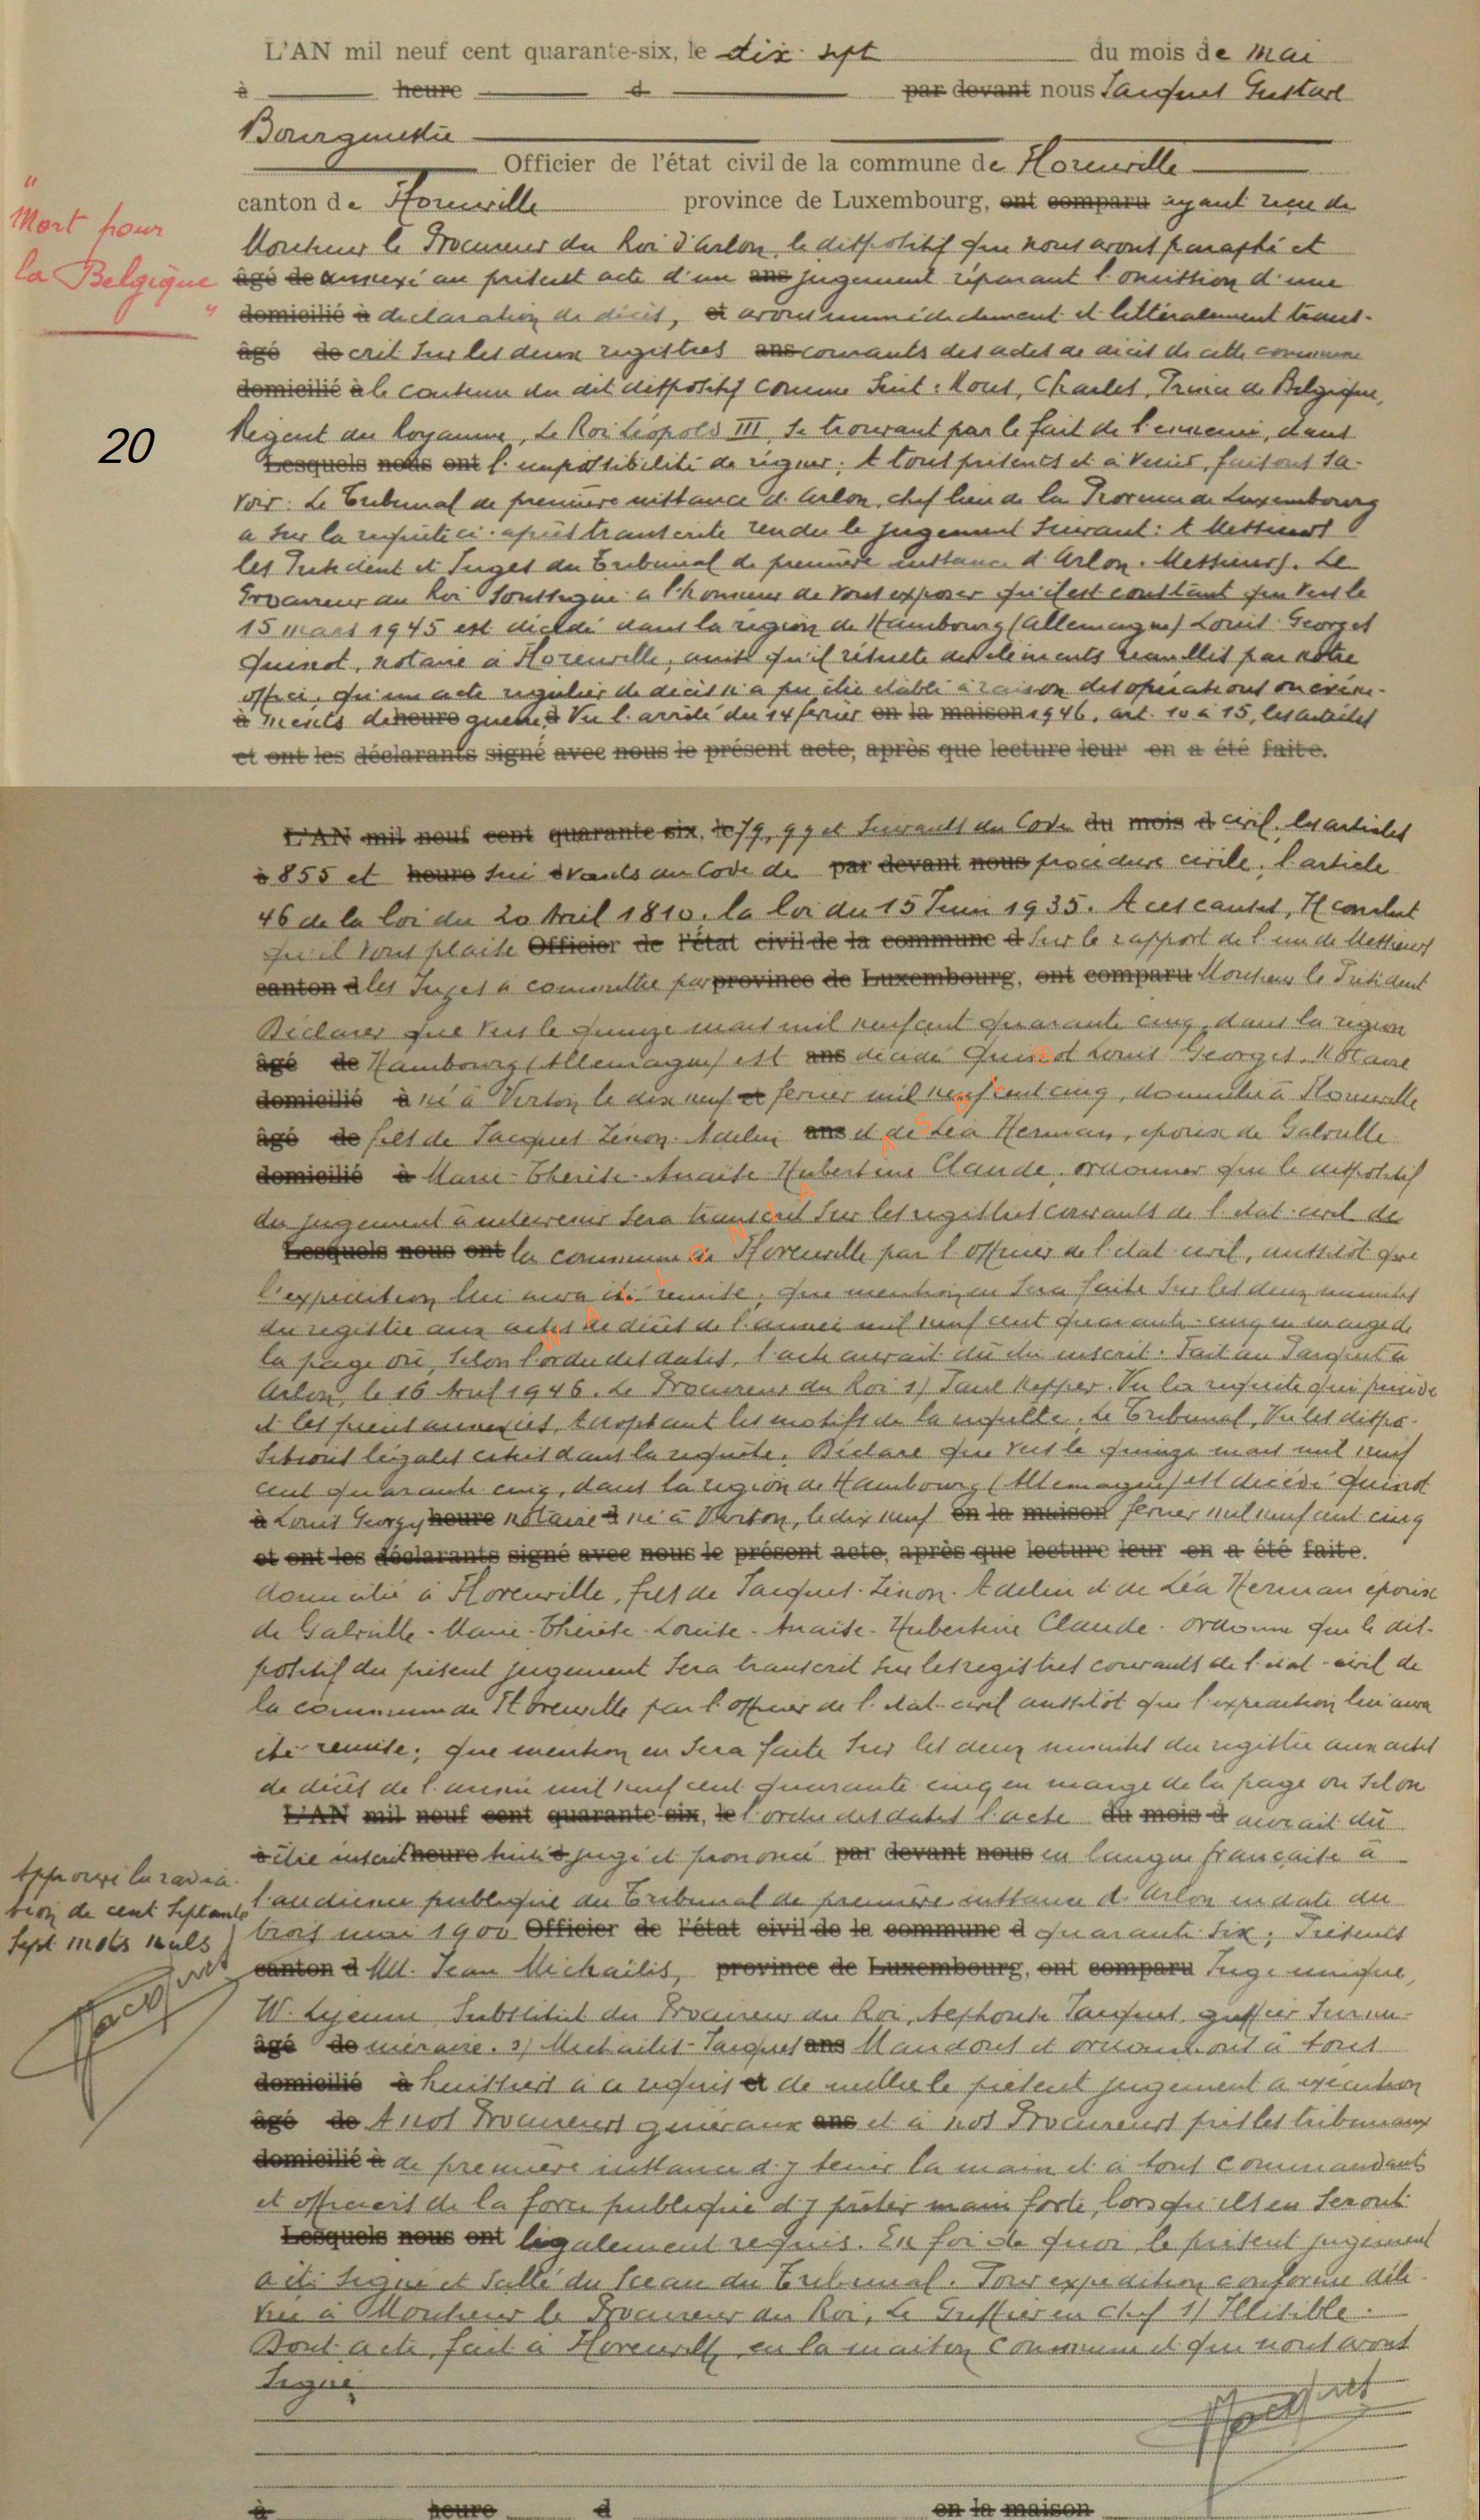 L'AN mil neuf cent quarante-six, le dix-sept du mois de Mai
à heure d par devant nous Jacques Gustave
Bourgmestre
Officier de l'état civil de la commune de Florenville
canton de Florenville province de Luxembourg, ont comparu ayant reçu de
"
Mort pour
la Belgique
"
Monsieur le Procureur du Roi d'Arlon, le dispositif que nous avons paraphé et
âgé de annexé au présent acte d'un ans jugement réparant l'omission d'une
domicilié à déclaration de décès, et avons immédiatement et littéralement trans-
âgé de crit sur les deux registres ans courants des actes de décès de cette commune
domicilié à le contenu du dit dispositif comme suit: Nous, Charles, Prince de Belgique,
20
Régent du Royaume, Le Roi Léopold III, se trouvant par le fait de l'ennemi, dans
Lesquels nous ont l'impossibilité de régner; A tous présents et à venir, faisons sa-
voir: Le Tribunal de première instance d'Arlon, chef lieu de la Province de Luxembourg
a sur la requête ci-après transcrite rendu le jugement suivant: A Messieurs
les Président et Juges du Tribunal de première instance d'Arlon. Messieurs. Le
Procureur du Roi soussigné a l'honneur de vous exposer qu'il est constant que vers le
15 mars 1945 est décédé dans la région de Hambourg (Allemagne) Louis Georges
Quinot, notaire à Florenville, ainsi qu'il résulte des éléments recueillis par notre
office, qu'un acte régulier de décès n'a pu être établi à raison des opérations ou évène-
à ments de heure guerre, d Vu l'arrêté du 14 février en la maison 1946, art. 10 à 15, les articles
et ont les déclarants signé avec nous le présent acte, après que lecture leur en a été faite.
L'AN mil neuf cent quarante-six, le 79, 99 et suivants du Code du mois d civil, les articles
à 855 et heure sui d vants du Code de par devant nous procédure civile, l'article
46 de la loi du 20 Avril 1810, la loi du 15 Juin 1935. A ces causes, Il conclut
qu'il vous plaise Officier de l'état civil de la commune d Sur le rapport de l'un de Messieurs
canton d les Juges à commettre par province de Luxembourg, ont comparu Monsieur le Président
Déclarer que vers le quinze mars mil neuf cent quarante cinq, dans la région
âgé de Hambourg (Allemagne) est ans décédé Quinot Louis Georges, Notaire
domicilié à né à Virton, le dix neuf et février mil neuf cent cinq, domicilié à Florenville
âgé de fils de Jacques Zénon Adelin ans et de Léa Herman, époux de Galville
domicilié à Marie-Thérèse-Anaïse Hubertine Claude, ordonner que le dispositif
du jugement à intervenir sera transcrit sur les registres courants de l'état civil de
Lesquels nous ont la commune de Florenville par l'officier de l'état civil, aussitôt que
l'expédition lui aura été remise; que mention en sera faite sur les deux minutes
du registre aux actes de décès de l'année mil neuf cent quarante-cinq en marge de
la page où, selon l'ordre des dates, l'acte aurait dû être inscrit. Fait au Parquet à
Arlon, le 16 Avril 1946. Le Procureur du Roi s/ Paul Kepper. Vu la requête qui précède
et les pièces annexées, Adoptant les motifs de la requête, Le Tribunal, Vu les dispo-
sitions légales citées dans la requête, Déclare que vers le quinze mars mil neuf
cent quarante cinq, dans la région de Hambourg (Allemagne) est décédé Quinot
à Louis Georges heure notaire d né à Virton, le dix neuf en la maison février mil neuf cent cinq
et ont les déclarants signé avec nous le présent acte, après que lecture leur en a été faite.
domicilié à Florenville, fils de Jacques-Zénon-Adelin et de Léa Herman époux
de Galville-Marie-Thérèse-Louise-Anaïse-Hubertine Claude. Ordonne que le dis-
positif du présent jugement sera transcrit sur les registres courants de l'état-civil de
la commune de Florenville par l'officier de l'état-civil aussitôt que l'expédition lui aura
été remise; que mention en sera faite sur les deux minutes du registre aux actes
de décès de l'année mil neuf cent quarante-cinq en marge de la page où selon
L'AN mil neuf cent quarante-six, le l'ordre des dates l'acte du mois d aurait dû
à être inscrit heure ainsi d jugé et prononcé par devant nous en langue française à
l'audience publique du Tribunal de première instance d'Arlon en date du
trois mai 1900 Officier de l'état civil de la commune d quarante-six; Présents
Approuvé la radia-
tion de cent septante
sept mots nuls
Jacques
canton d MM. Jean Michaëlis, province de Luxembourg, ont comparu Juge unique,
W. Lejeune Substitut du Procureur du Roi, Alphonse Jacques, greffier surnu-
âgé de méraire. s/ Michaëlis-Jacques ans Mandons et ordonnons à tous
domicilié à huissiers à ce requis et de mettre le présent jugement à exécution
âgé de A nos Procureurs généraux ans et à nos Procureurs près les tribunaux
domicilié à de première instance d'y tenir la main et à tous commandants
et officiers de la force publique d'y prêter main forte, lorsqu'ils en seront
Lesquels nous ont légalement requis. En foi de quoi, le présent jugement
a été signé et scellé du sceau du Tribunal. Pour expédition conforme déli-
vrée à Monsieur le Procureur du Roi, Le Greffier en Chef s/ Illisible.
Dont acte, fait à Florenville, en la maison communale et que nous avons
signé
Jacques
à heure d en la maison